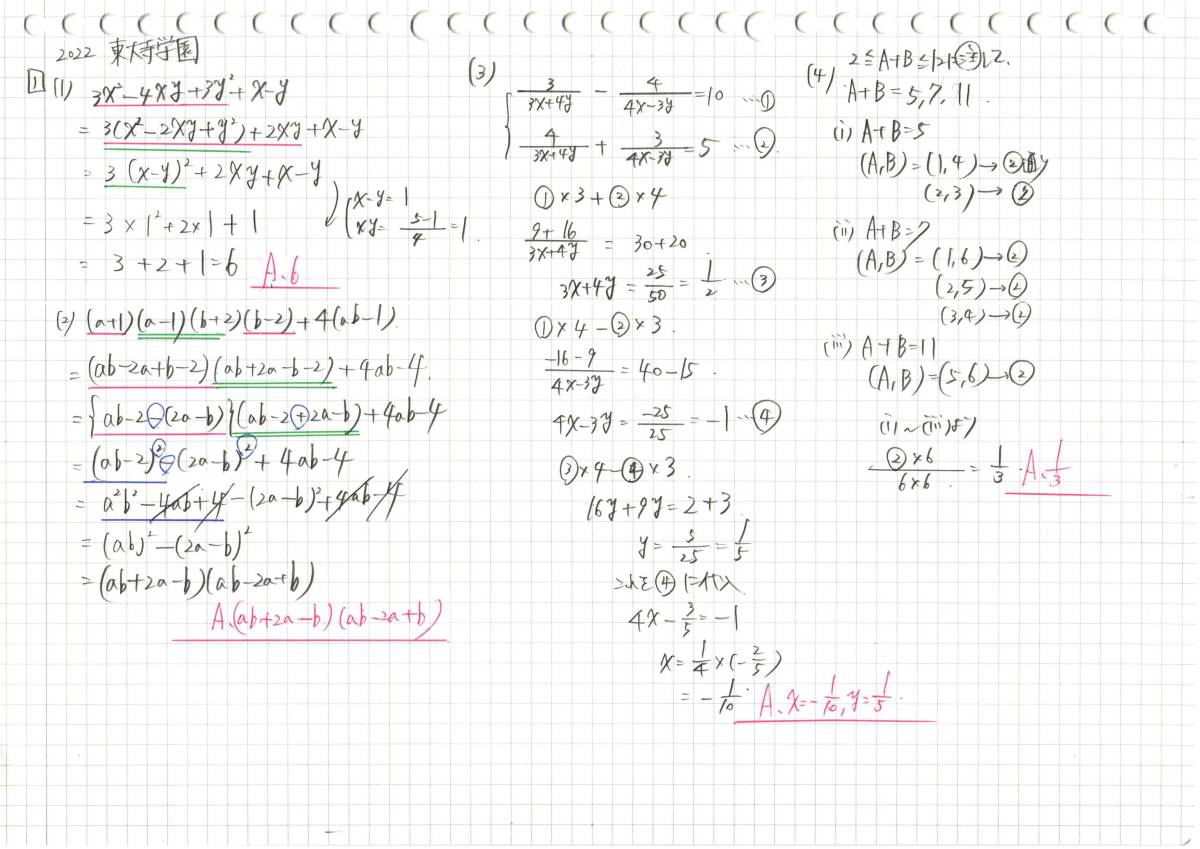 2022 東大寺学園
1 (1) 3x²-4xy+3y²+x-y
= 3(x²-2xy+y²)+2xy+x-y
= 3(x-y)²+2xy+x-y
x-y=1
xy= (5-1)/4 =1.
= 3×1²+2×1+1
= 3+2+1=6 A.6
(2) (a+1)(a-1)(b+2)(b-2)+4(ab-1)
= (ab-2a+b-2)(ab+2a-b-2)+4ab-4.
= {ab-2-(2a-b)}(ab-2+2a-b)+4ab-4
= (ab-2)²-(2a-b)²+4ab-4
= a²b²-4ab+4-(2a-b)²+4ab-4
= (ab)²-(2a-b)²
= (ab+2a-b)(ab-2a+b)
A.(ab+2a-b)(ab-2a+b)
(3)
3/(3x+4y) - 4/(4x-3y) =10 …①
4/(3x+4y) + 3/(4x-3y) =5 …②
①×3+②×4
(9+16)/(3x+4y) = 30+20.
3x+4y = 25/50 = 1/2 …③
①×4-②×3.
(-16-9)/(4x-3y) = 40-15.
4x-3y = -25/25 = -1 …④
③×4-④×3.
16y+9y=2+3.
y= 5/25 = 1/5
これを④に代入
4x- 3/5 =-1
x= 1/4 ×(- 2/5)
= - 1/10. A. x=- 1/10, y= 1/5.
(4) 2≦A+B≦12に注意して、
A+B=5,7,11.
(i) A+B=5
(A,B)=(1,4)→②通り
(2,3)→②
(ii) A+B=7
(A,B)=(1,6)→②
(2,5)→②
(3,4)→②
(iii) A+B=11
(A,B)=(5,6)→②
(i)~(iii)より
②×6/6×6 = 1/3. A. 1/3